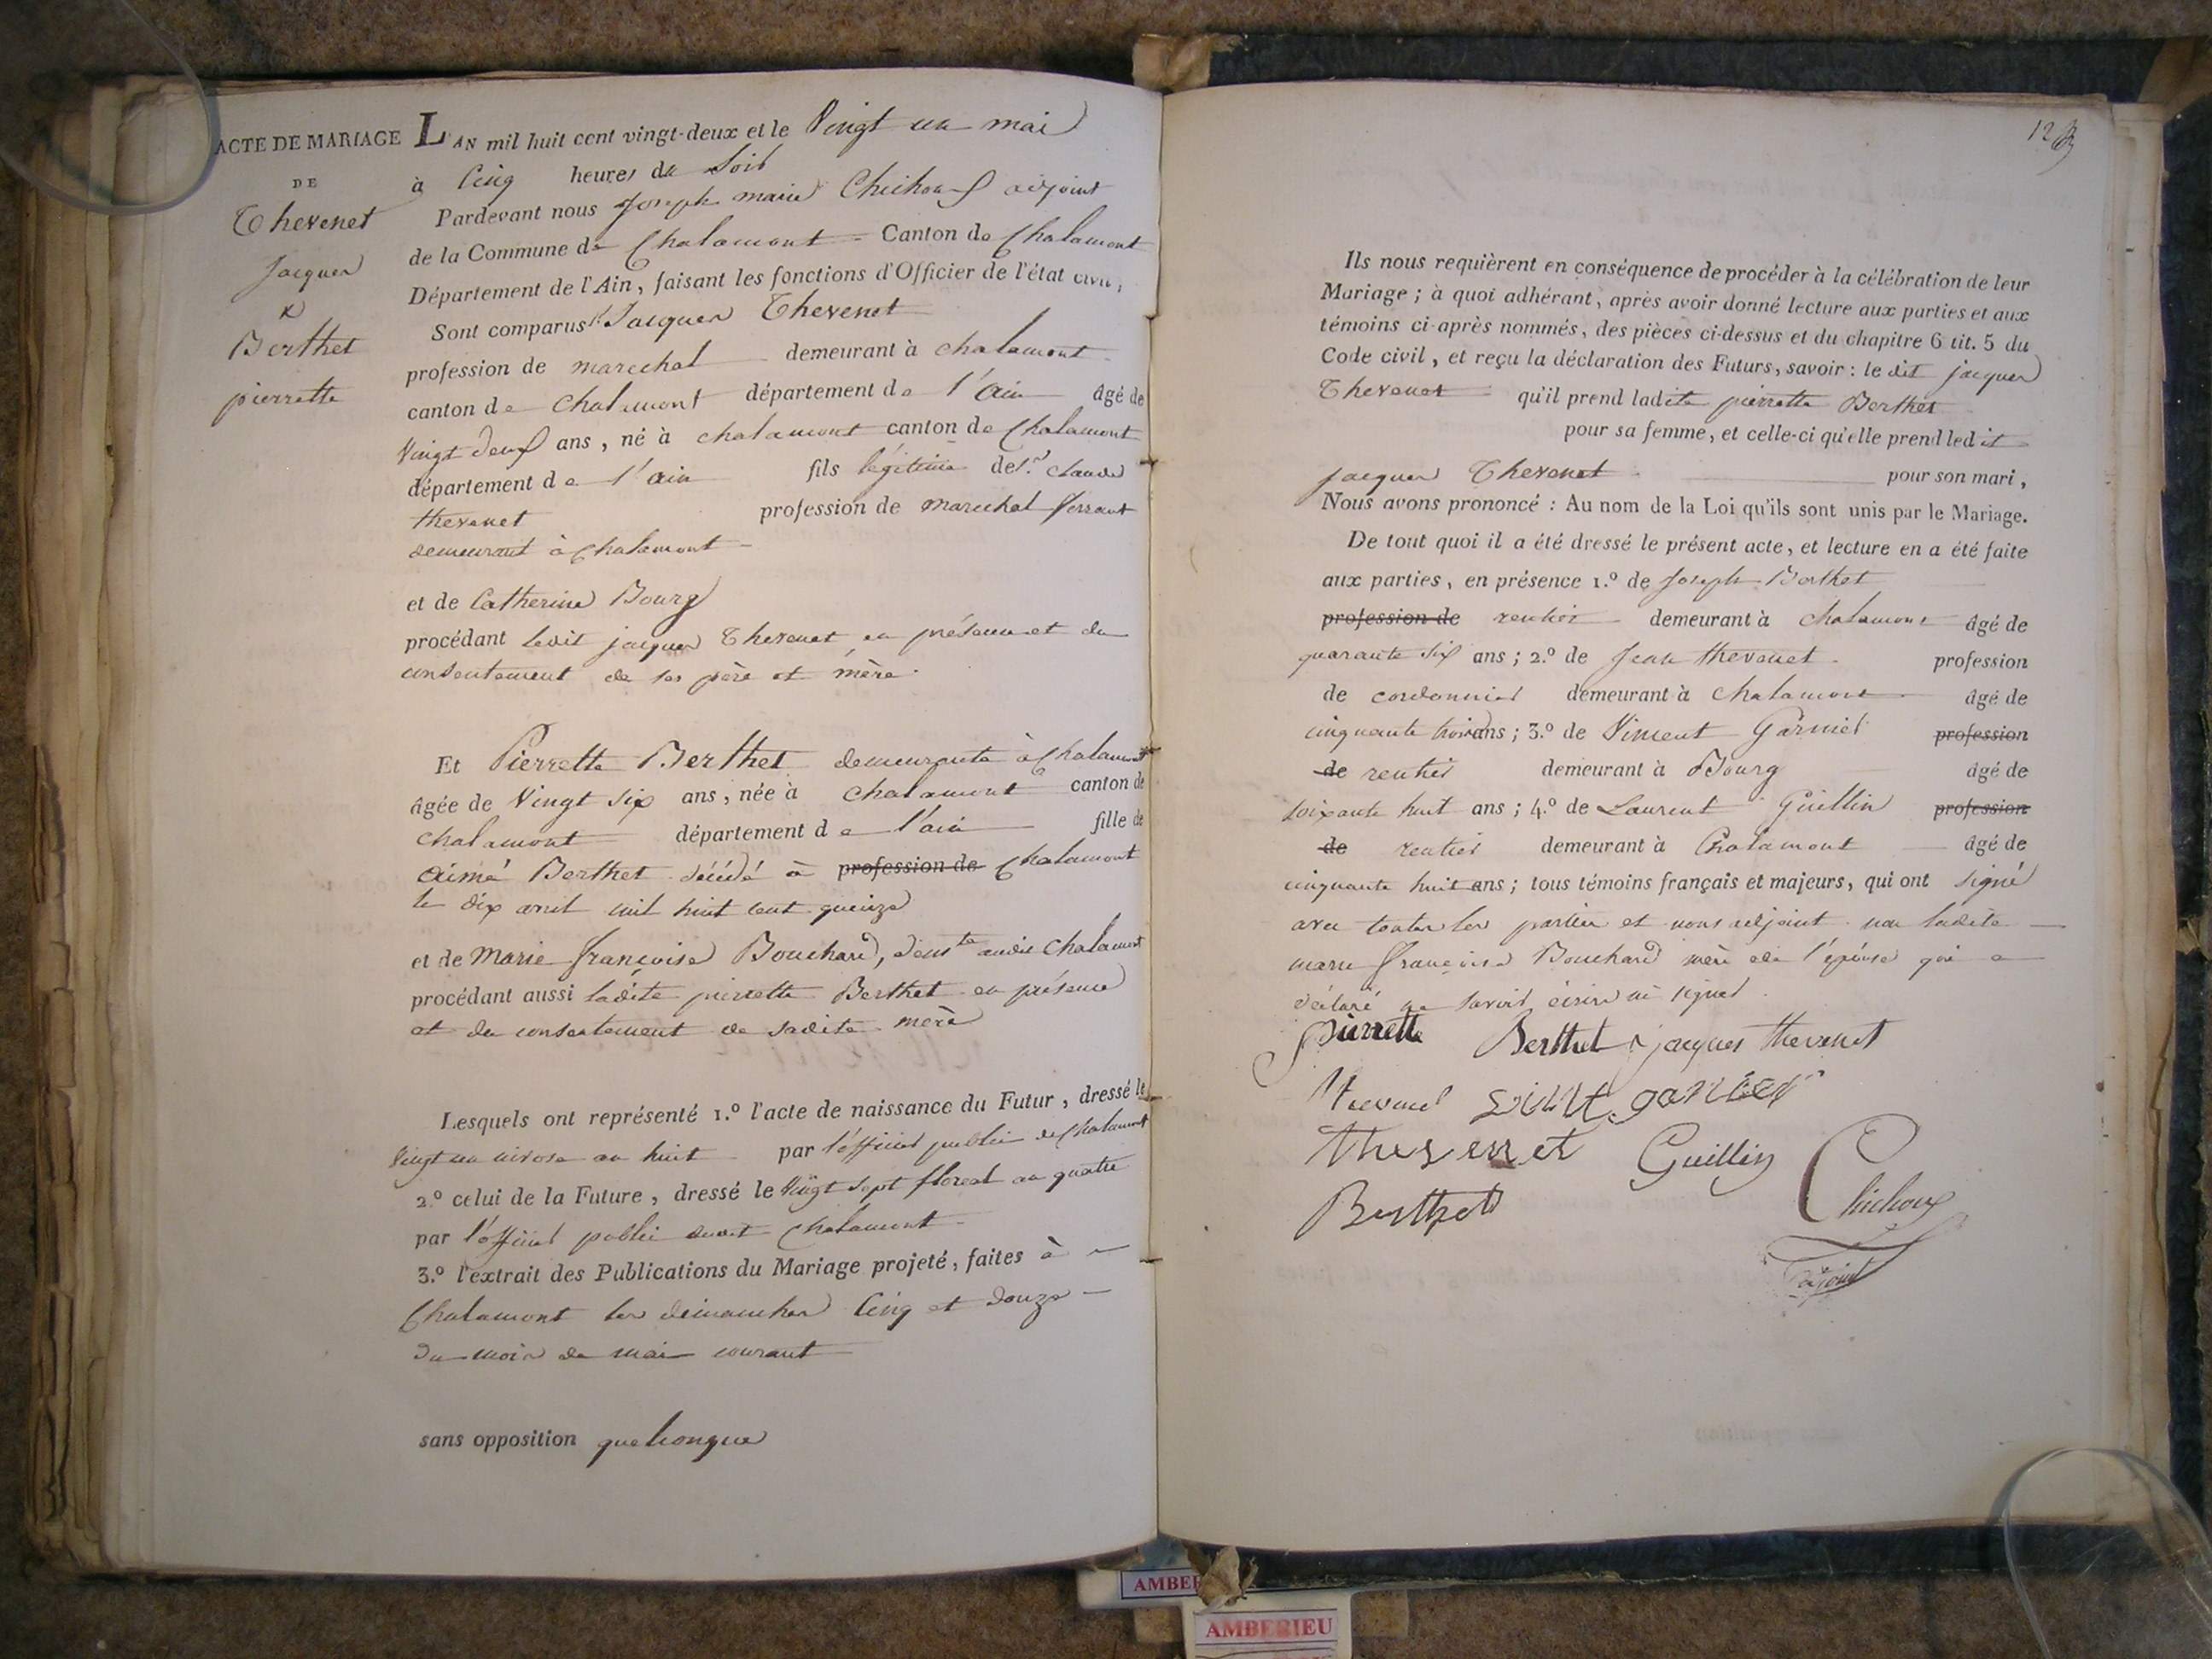 ACTE DE MARIAGE
DE
Thevenet
jacques
&
Berthet
pierrette
L'AN mil huit cent vingt-deux et le Vingt un mai
à Cinq heures du Soir
Pardevant nous Joseph marie Chichoux adjoint
de la Commune de Chalamont Canton de Chalamont
Département de l'Ain, faisant les fonctions d'Officier de l'état civil,
Sont comparus Sr. Jacques Thevenet
profession de marechal demeurant à chalamont
canton de chalamont département de l'ain âgé de
Vingt deux ans, né à chalamont canton de Chalamont
département de l'ain fils légitime de Sr. claude
thevenet profession de marechal ferrant
demeurant à Chalamont
et de Catherine Bourg
procédant ledit jacques Thevenet en présence et du
consentement de ses père et mère
Et Pierrette Berthet demeurante à Chalamont
âgée de Vingt six ans, née à chalamont canton de
chalamont département de l'ain fille de
aimé Berthet décédé à profession de Chalamont
le dix avril mil huit cent quinze
et de Marie françoise Bouchard, demte audit Chalamont
procédant aussi ladite pierrette Berthet en présence
et du consentement de sadite mère
Lesquels ont représenté 1.º l'acte de naissance du Futur, dressé le
Vingt un nivose an huit par l'officier public de Chalamont
2º celui de la Future, dressé le Vingt sept floreal an quatre
par l'officier public dudit Chalamont
3.º l'extrait des Publications du Mariage projeté, faites à
Chalamont les dimanches Cinq et douze
du mois de mai courant
sans opposition quelconque
Ils nous requièrent en conséquence de procéder à la célébration de leur
Mariage ; à quoi adhérant, après avoir donné lecture aux parties et aux
témoins ci-après nommés, des pièces ci-dessus et du chapitre 6 tit. 5 du
Code civil, et reçu la déclaration des Futurs, savoir : le dit jacques
Thevenet qu'il prend ladite pierrette Berthet
pour sa femme, et celle-ci qu'elle prend ledit
jacques Thevenet pour son mari,
Nous avons prononcé : Au nom de la Loi qu'ils sont unis par le Mariage.
De tout quoi il a été dressé le présent acte, et lecture en a été faite
aux parties, en présence 1.º de Joseph Berthet
profession de rentier demeurant à chalamont âgé de
quarante six ans ; 2.º de Jean thevenet profession
de cordonnier demeurant à chalamont âgé de
cinquante trois ans ; 3.º de Vincent Garnier profession
de rentier demeurant à Bourg âgé de
soixante huit ans ; 4.º de Laurent Guillin profession
de rentier demeurant à Chalamont âgé de
cinquante huit ans ; tous témoins français et majeurs, qui ont signé
avec toutes les parties et nous adjoint non ladite
marie françoise Bouchard mère de l'épouse qui a
déclaré ne savoir écrire ni signer
pierrette Berthet jacques thevenet
thevenet garnier
Thevennet Guillin
Berthet Chichoux
adjoint
AMBERIEU